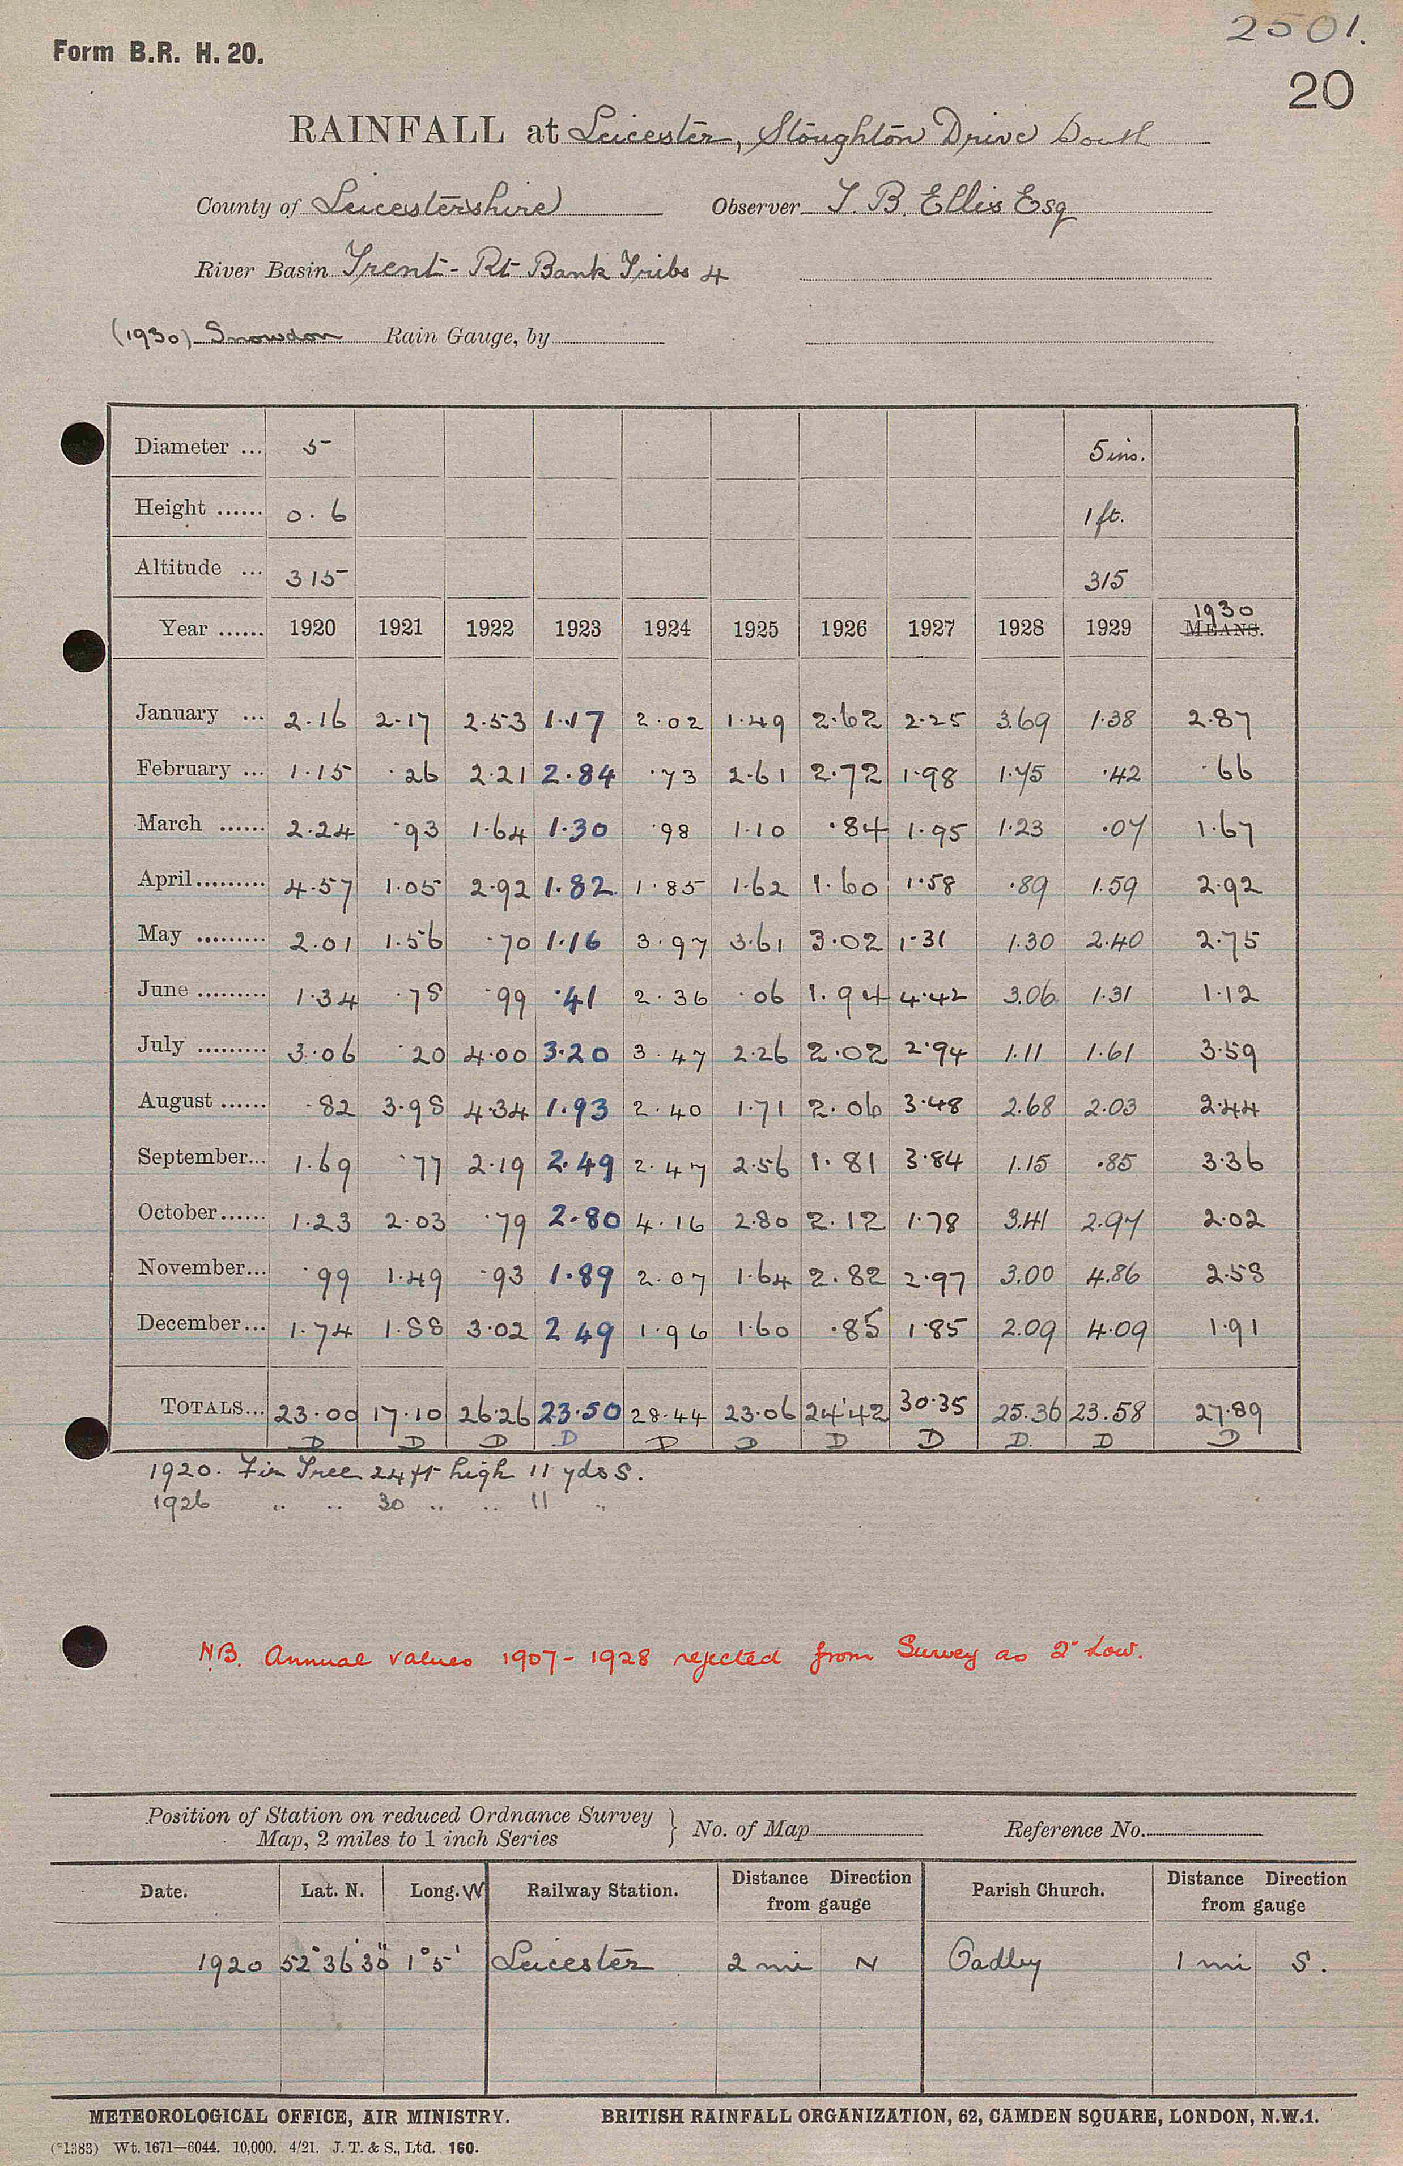 2501.
Form B.R. H. 20.
20
RAINFALL at Leicester, Stoughton Drive South
County of Leicestershire Observer T. B. Ellis Esq
River Basin Trent - Rt Bank Tribs 4
(1930) Snowdon Rain Gauge, by
Diameter ... 5 5 ins.
Height ...... 0.6 1 ft.
Altitude ... 315 315
Year ...... 1920 1921 1922 1923 1924 1925 1926 1927 1928 1929 1930 MEANS.
January ... 2.16 2.17 2.53 1.17 2.02 1.49 2.62 2.25 3.69 1.38 2.87
February ... 1.15 .26 2.21 2.84 .73 2.61 2.72 1.98 1.75 .42 .66
March ...... 2.24 .93 1.64 1.30 .98 1.10 .84 1.95 1.23 .07 1.67
April......... 4.57 1.05 2.92 1.82 1.85 1.62 1.60 1.58 .89 1.59 2.92
May ......... 2.01 1.56 .70 1.16 3.97 3.61 3.02 1.31 1.30 2.40 2.75
June ......... 1.34 .78 .99 .41 2.36 .06 1.94 4.42 3.06 1.31 1.12
July ......... 3.06 .20 4.00 3.20 3.47 2.26 2.02 2.94 1.11 1.61 3.59
August ...... .82 3.98 4.34 1.93 2.40 1.71 2.06 3.48 2.68 2.03 2.44
September... 1.69 .77 2.19 2.49 2.47 2.56 1.81 3.84 1.15 .85 3.36
October...... 1.23 2.03 .79 2.80 4.16 2.80 2.12 1.78 3.41 2.97 2.02
November... .99 1.49 .93 1.89 2.07 1.64 2.82 2.97 3.00 4.86 2.58
December... 1.74 1.88 3.02 2 49 1.96 1.60 .85 1.85 2.09 4.09 1.91
TOTALS... 23.00 17.10 26.26 23.50 28.44 23.06 24.42 30.35 25.36 23.58 27.89
D D D D D D D D D D D
1920. Fir Tree 24 ft high 11 yds S.
1926 .. .. 30 .. .. 11 ..
NB. Annual values 1907 - 1928 rejected from Survey as 2" Low.
Position of Station on reduced Ordnance Survey
Map, 2 miles to 1 inch Series } No. of Map Reference No.
Date. Lat. N. Long. W Railway Station. Distance Direction from gauge Parish Church. Distance Direction from gauge
1920 52° 36' 30" 1° 5' Leicester 2 mi N Oadby 1 mi S.
METEOROLOGICAL OFFICE, AIR MINISTRY. BRITISH RAINFALL ORGANIZATION, 62, CAMDEN SQUARE, LONDON, N.W.1.
(*1383) Wt. 1671—6044. 10,000. 4/21. J. T. & S., Ltd. 160.